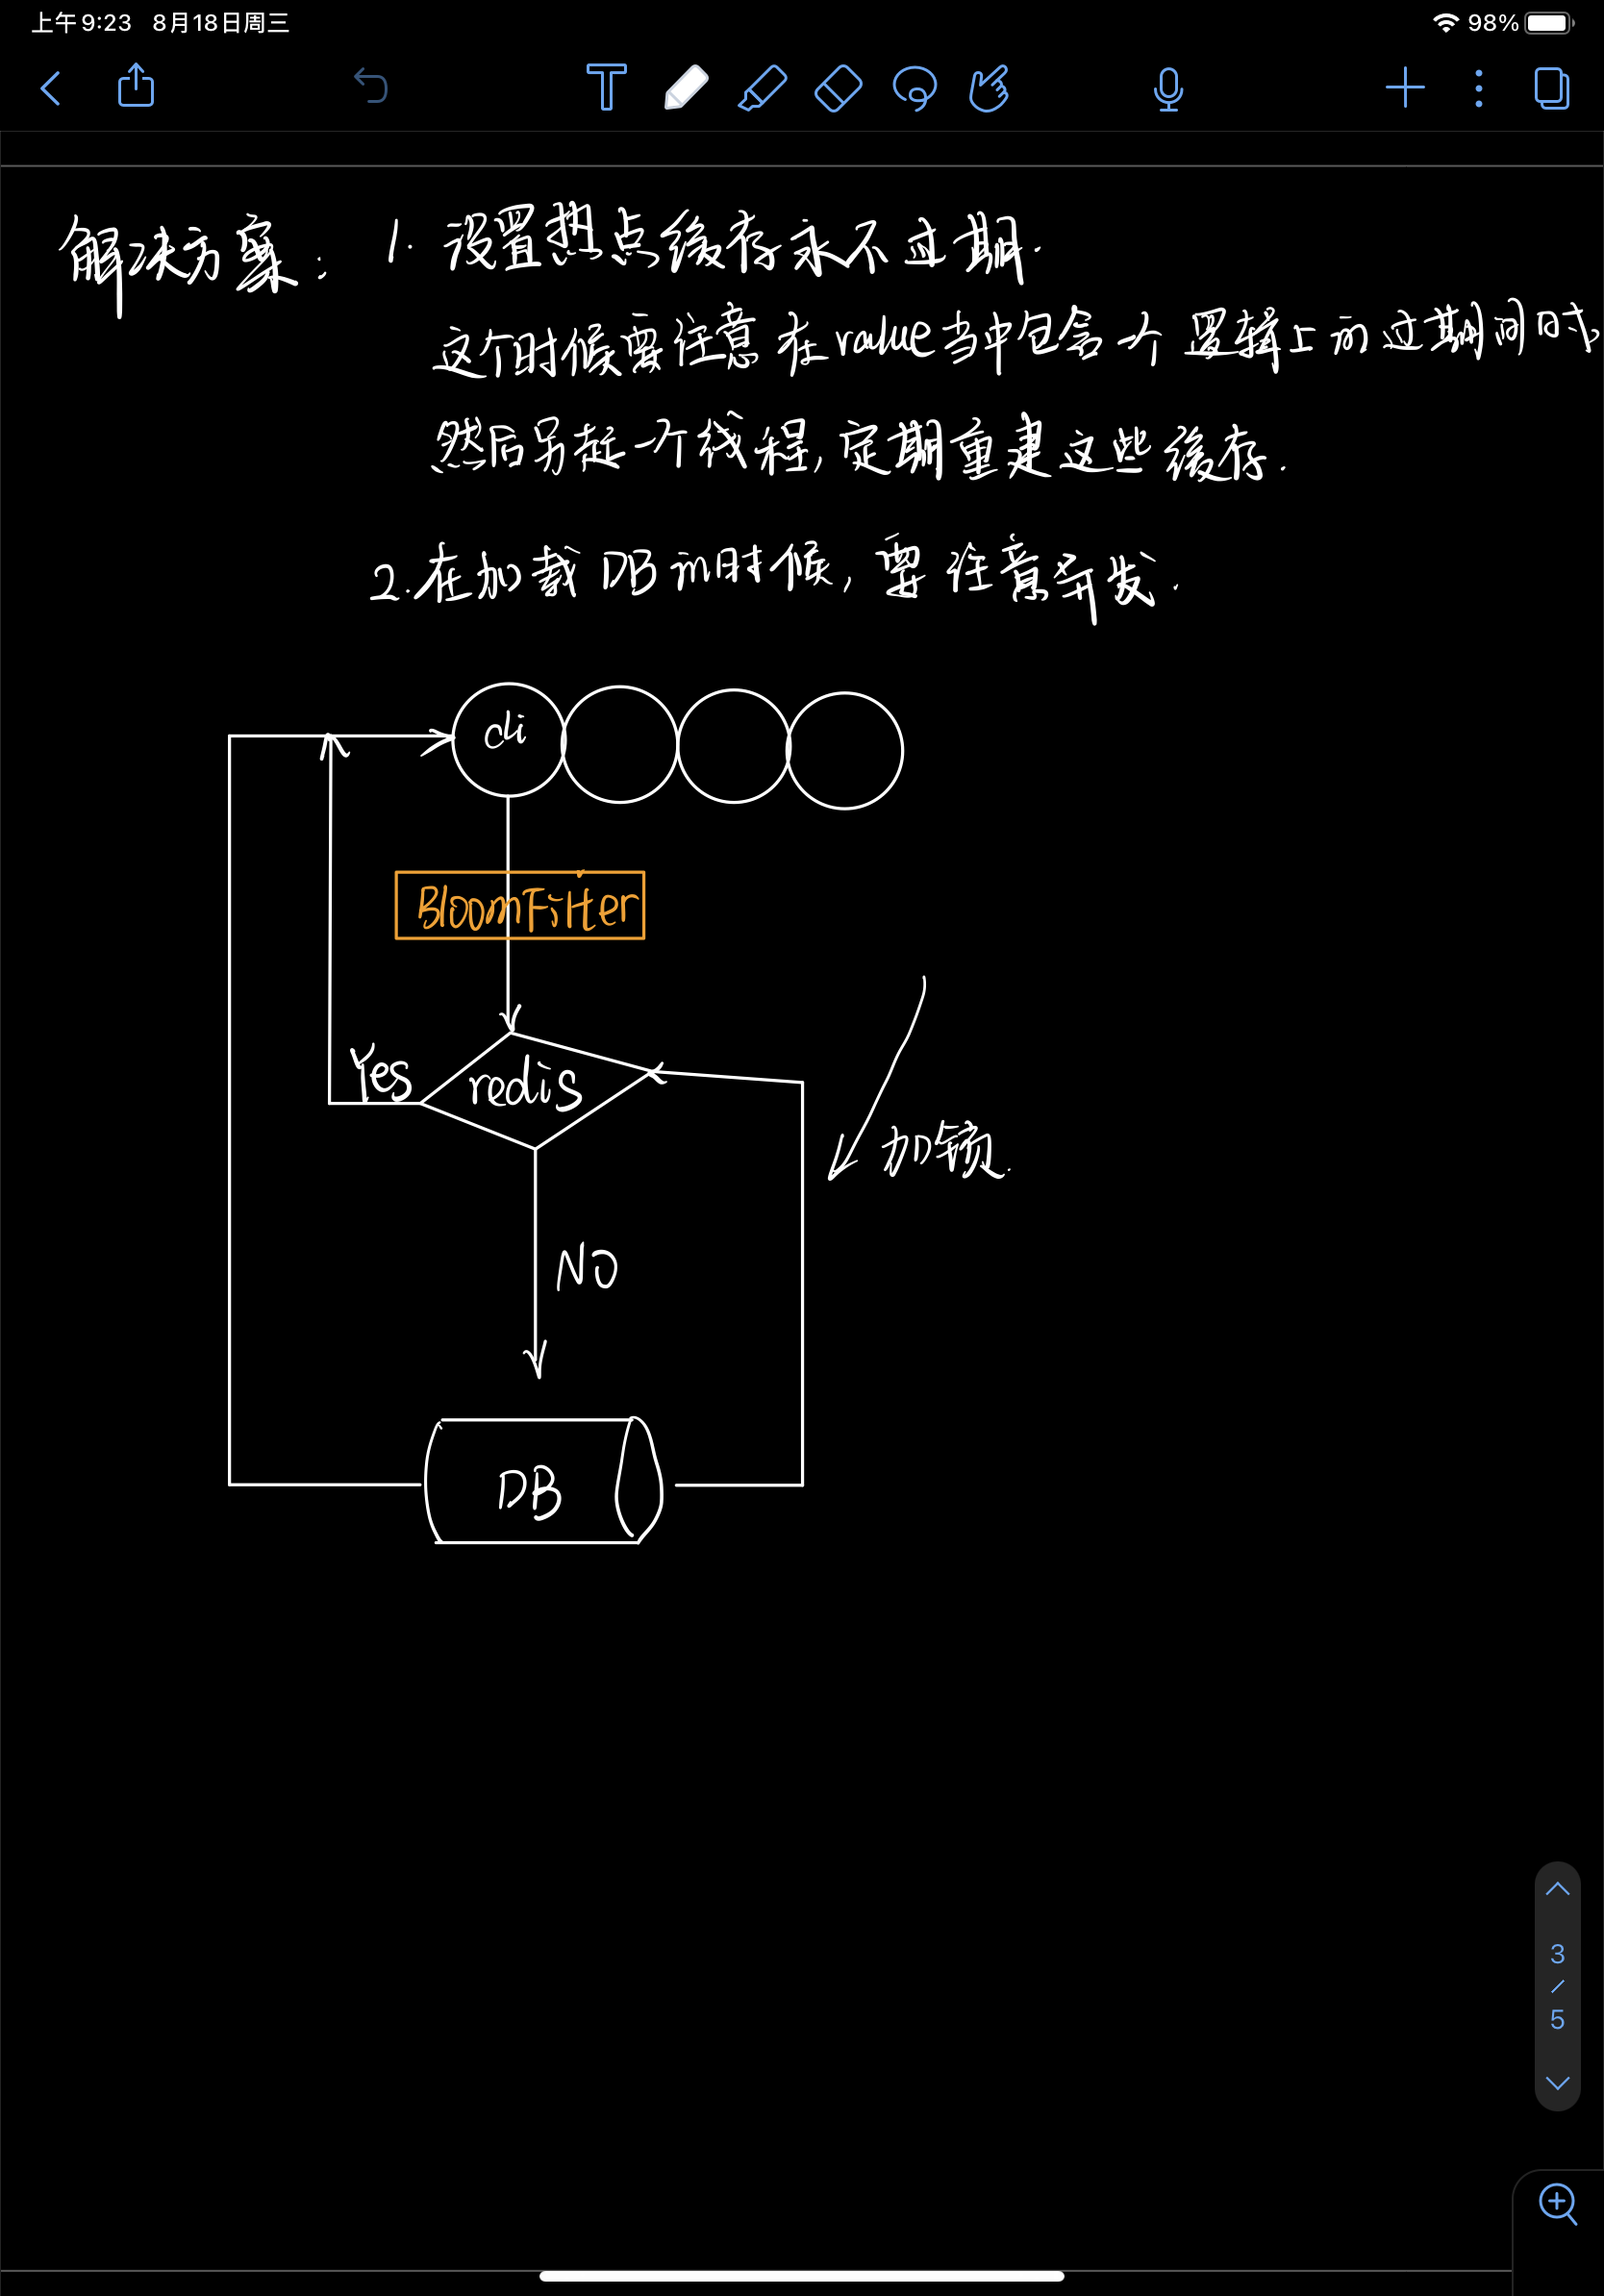 上午9:23 8月18日周三 98%
解决方案: 1. 设置热点缓存永不过期.
这个时候需要注意 在value当中包含一个 逻辑上的过期间时,
然后另起一个线程, 定期重建这些缓存.
2.在加载DB的时候, 需要注意并发.
cli
BloomFilter
Yes
redis
加锁.
NO
DB
3
/
5